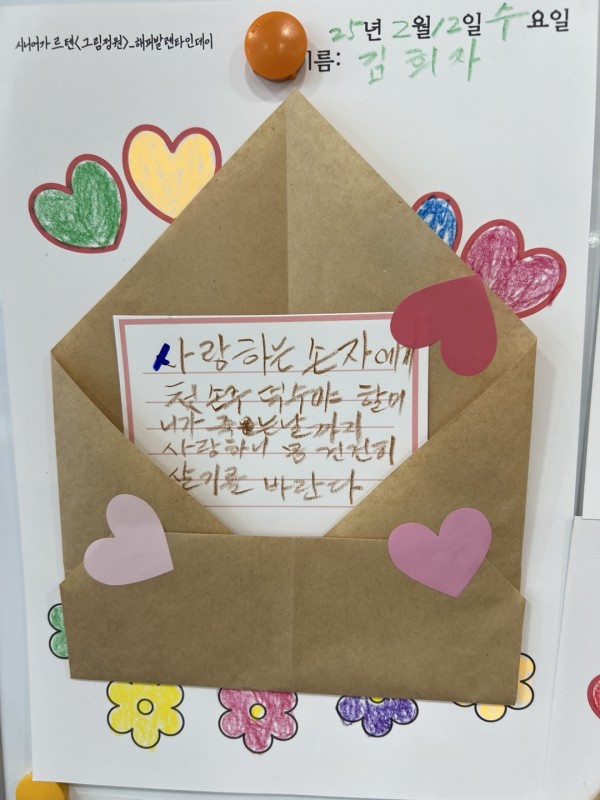 시니어카르텐<그림정원>_해피발렌타인데이
25년 2월 12일 수요일
이름: 김회자
사랑하는 손자에게
첫 손주 석수야 할머
니가 죽는날까지
사랑하니 몸 건전히
살기를 바란다